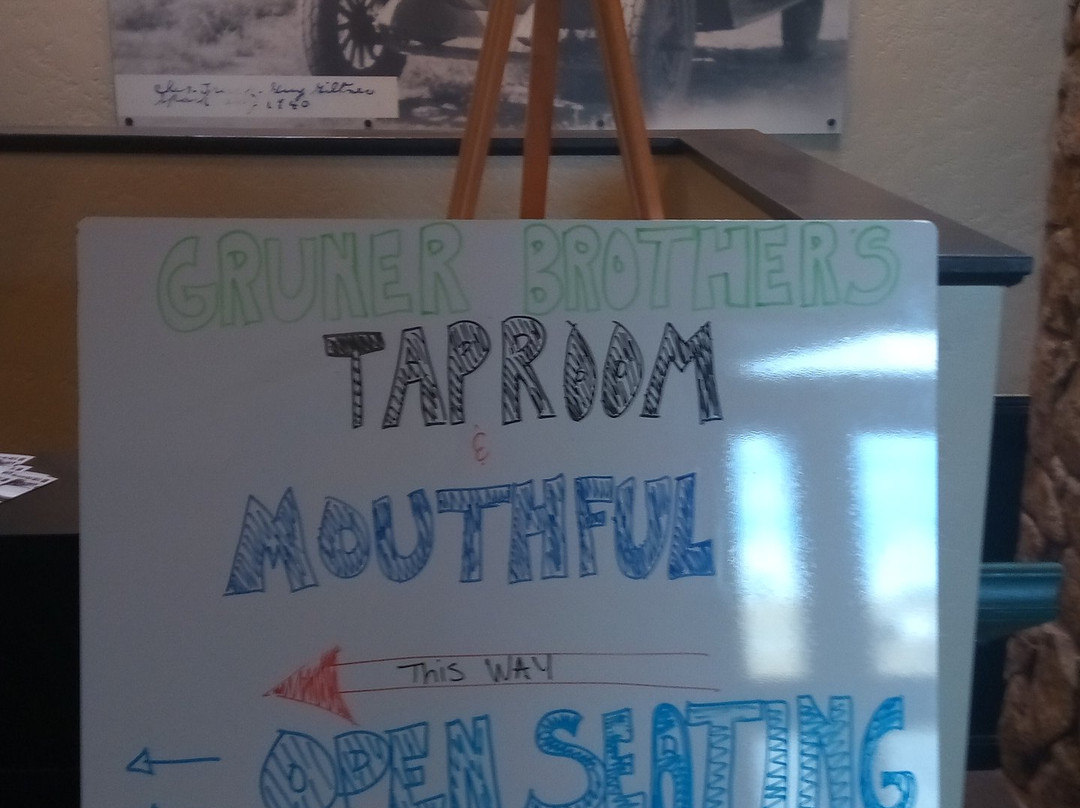 Guy Giltner
1940
GRUNER BROTHER'S
TAPROOM
&
MOUTHFUL
This WAY
OPEN SEATING